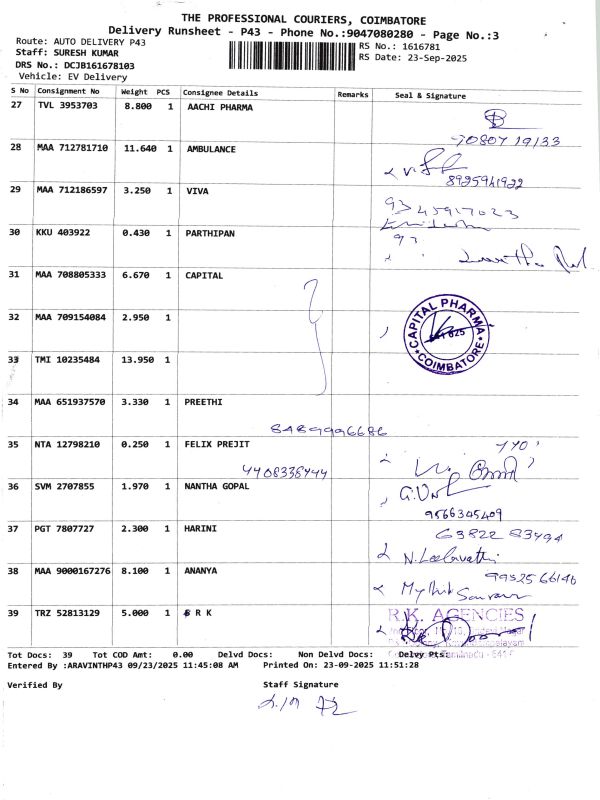 THE PROFESSIONAL COURIERS, COIMBATORE
Delivery Runsheet - P43 - Phone No.:9047080280 - Page No.:3
Route: AUTO DELIVERY P43
RS No.: 1616781
Staff: SURESH KUMAR
RS Date: 23-Sep-2025
DRS No.: DCJB161678103
Vehicle: EV Delivery
S No Consignment No Weight PCS Consignee Details Remarks Seal & Signature
27 TVL 3953703 8.800 1 AACHI PHARMA
28 MAA 712781710 11.640 1 AMBULANCE
8925941922
29 MAA 712186597 3.250 1 VIVA
9345917023
30 KKU 403922 0.430 1 PARTHIPAN
93
31 MAA 708805333 6.670 1 CAPITAL
32 MAA 709154084 2.950 1
CAPITAL PHARMA
COIMBATORE
33 TMI 10235484 13.950 1
34 MAA 651937570 3.330 1 PREETHI
8489996686
35 NTA 12798210 0.250 1 FELIX PREJIT
36 SVM 2707855 1.970 1 NANTHA GOPAL
9566345409
37 PGT 7807727 2.300 1 HARINI
63822 83494
N. Leelavathi
38 MAA 9000167276 8.100 1 ANANYA
39 TRZ 52813129 5.000 1 S R K
R.K. AGENCIES
Tot Docs: 39 Tot COD Amt: 0.00 Delvd Docs: Non Delvd Docs: Delvy Pts:
Entered By :ARAVINTHP43 09/23/2025 11:45:08 AM Printed On: 23-09-2025 11:51:28
Verified By Staff Signature